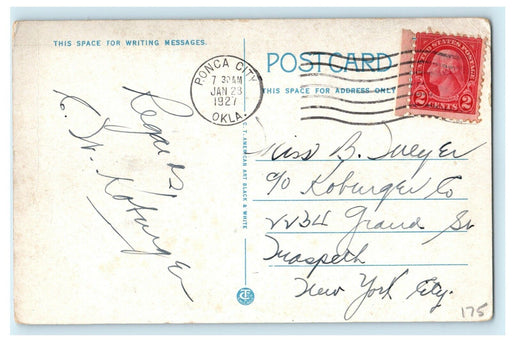 THIS SPACE FOR WRITING MESSAGES.
POSTCARD
THIS SPACE FOR ADDRESS ONLY
PONCA CITY
7 30AM
JAN 23
1927
OKLA.
UNITED STATES POSTAGE
2 CENTS 2
Regards
C. W. Koburger
C.T. AMERICAN ART BLACK & WHITE
Miss B. Meyer
c/o Koburger Co
2234 Grand St
Maspeth
New York City.
175